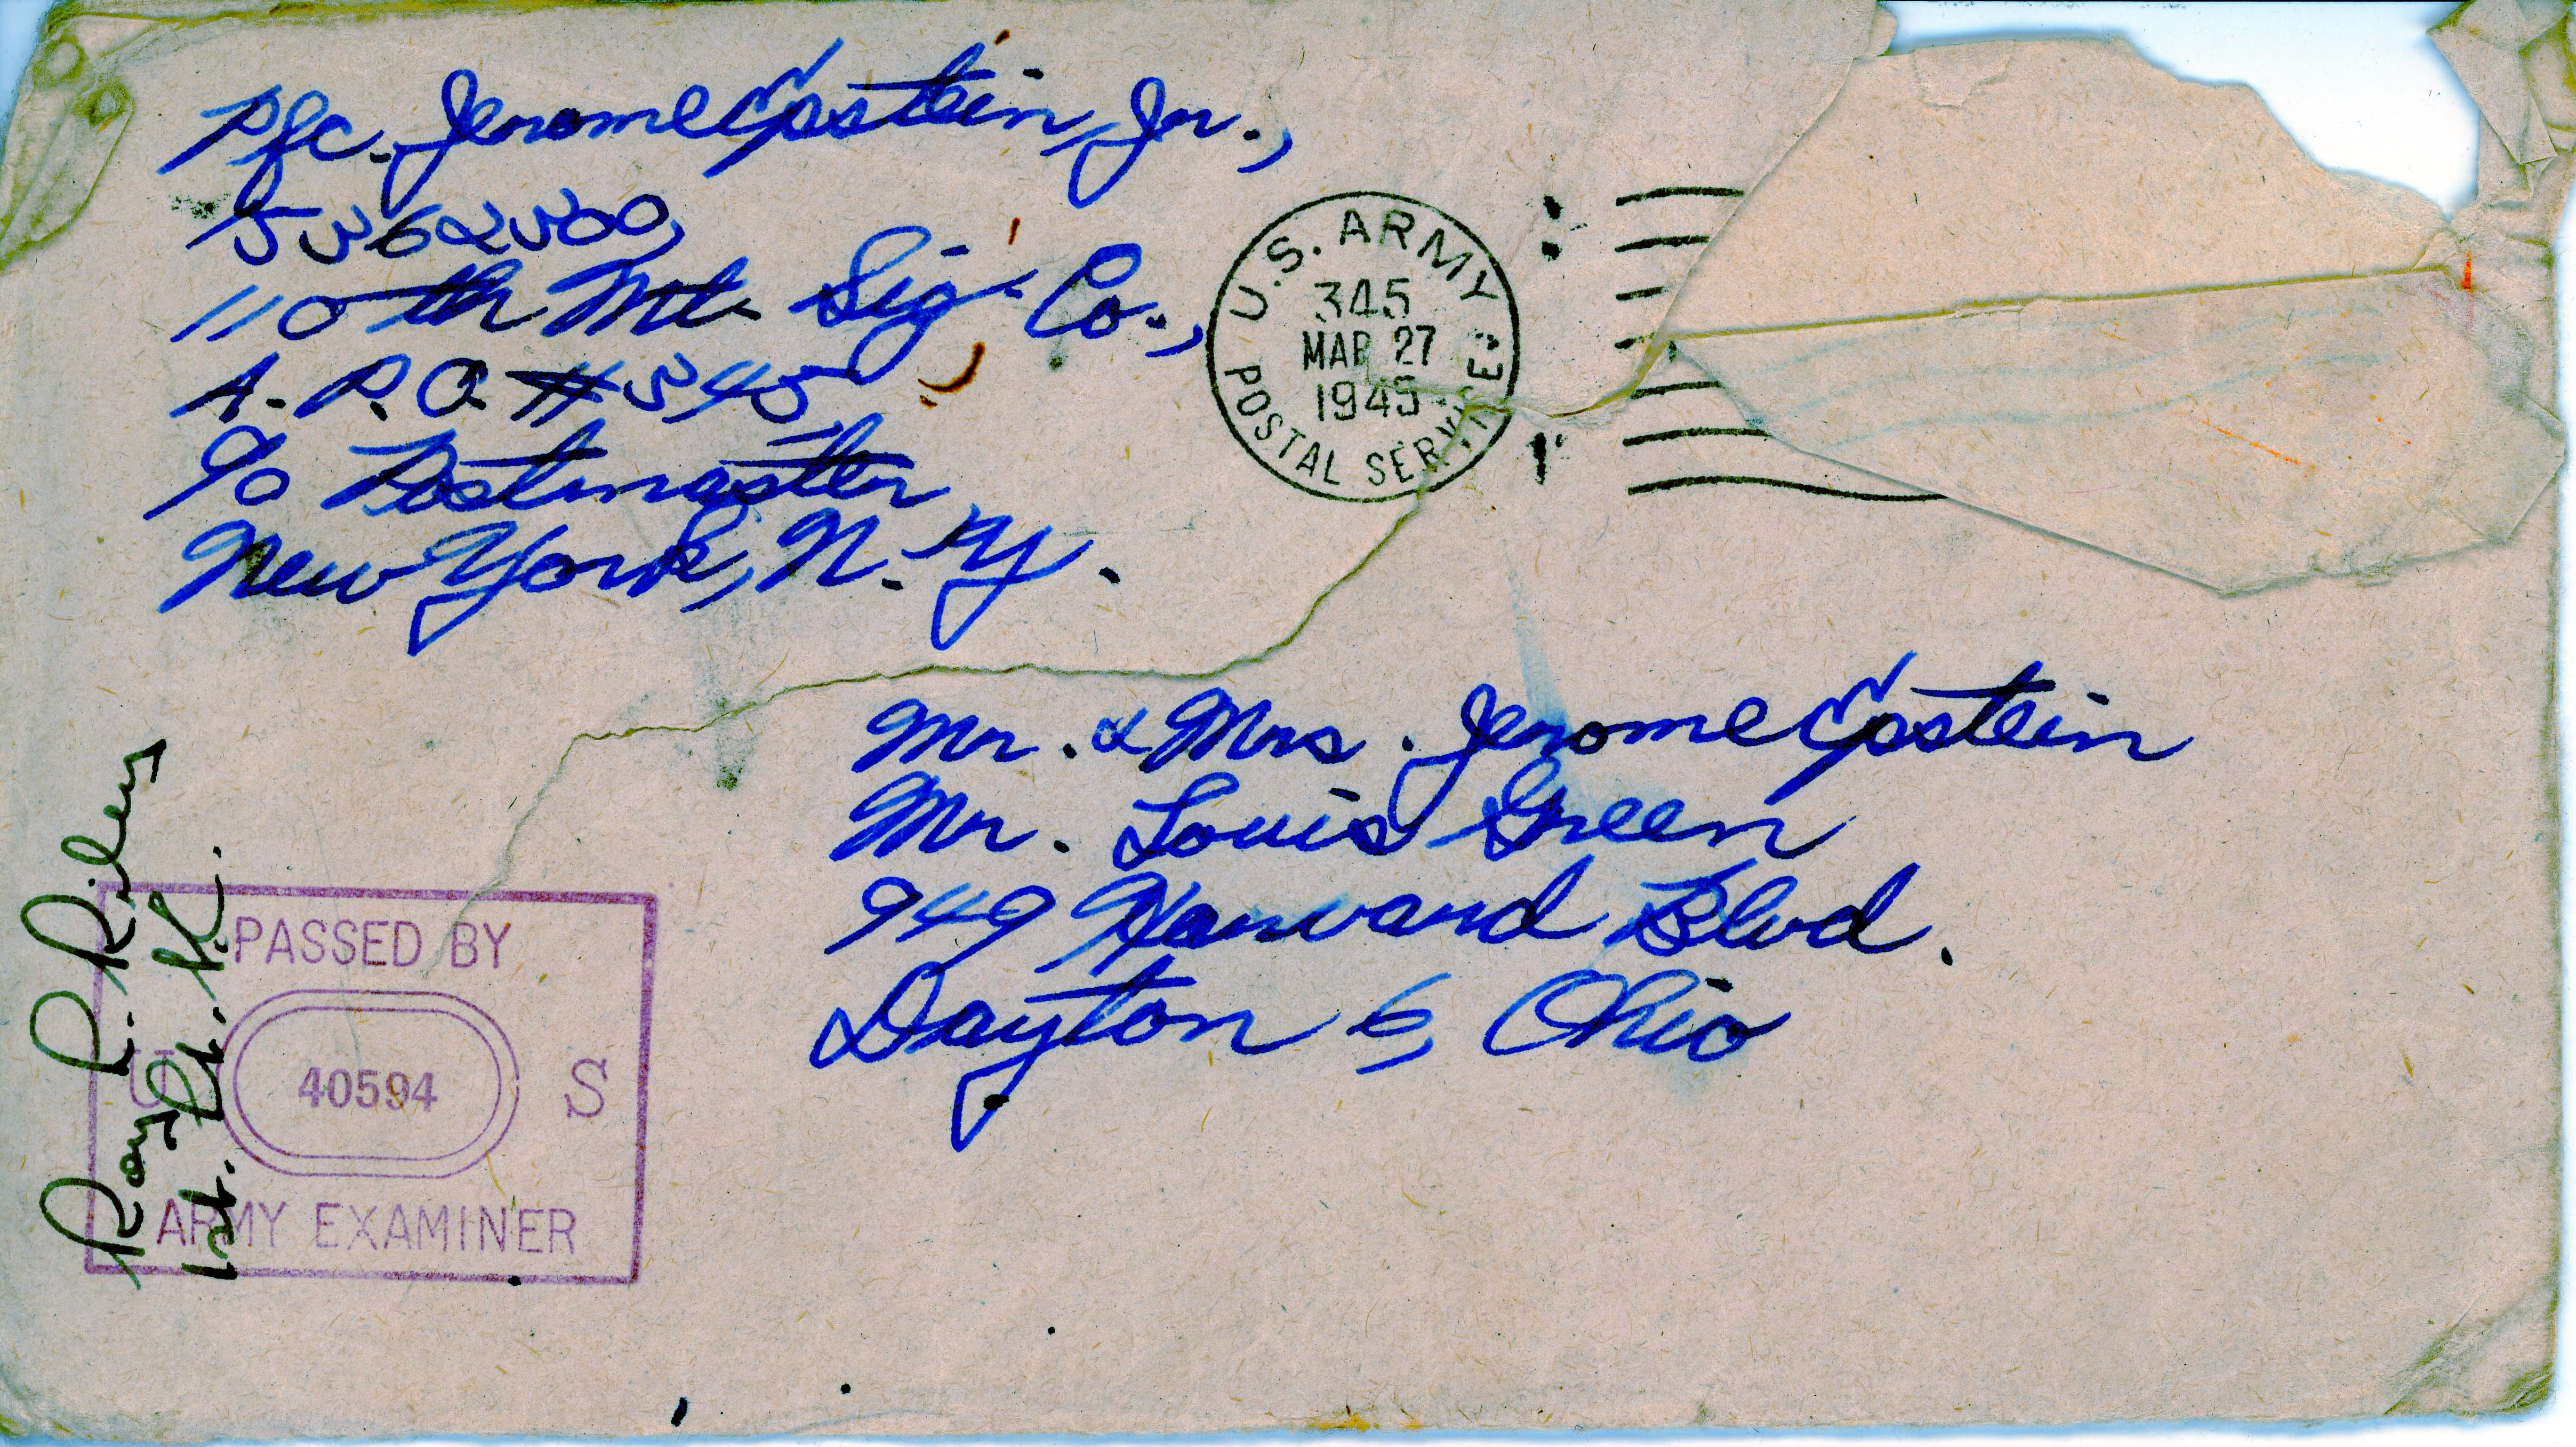 Pfc. Jerome Epstein, Jr.,
110th Mt. Sig. Co.,
A.P.O. #345,
c/o Postmaster
New York, N.Y.
U.S. ARMY POSTAL SERVICE
345
MAR 27
1945
Mr. & Mrs. Jerome Epstein
Mr. Louis Green
949 Harvard Blvd.
Dayton 6, Ohio
Ray L. Riley
1st. Lt. A.
PASSED BY
U 40594 S
ARMY EXAMINER